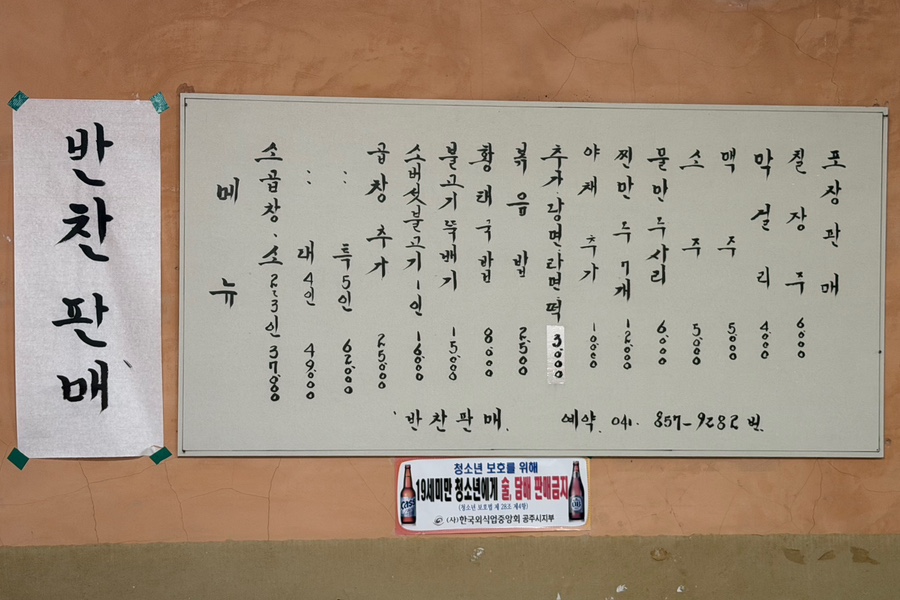 반찬판매
메뉴
소곱창. 소 2~3인 37000
: 대 4인 49000
: 특 5인 62000
곱창 추가 25000
소버섯불고기 1인 16000
불고기뚝배기 15000
황태국밥 8000
볶음밥 2500
추가 당면 라면 떡 3000
야채 추가 10000
찐만두 7개 12000
물만두사리 6000
소주 5000
맥주 5000
막걸리 4000
칠장주 6000
포장판매
반찬판매. 예약. 041. 857-9282 번.
청소년 보호를 위해
19세미만 청소년에게 술, 담배 판매금지
(청소년 보호법 제 28조 제4항)
(사)한국외식업중앙회 공주시지부
CASS